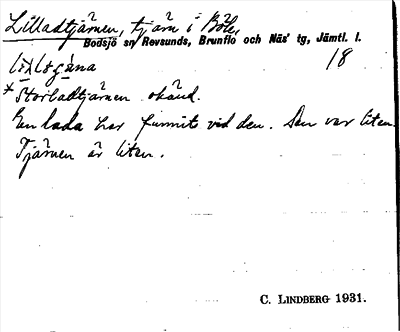 Lilladtjärnen, tjärn i Böle,
Bodsjö sn Revsunds, Brunflo och Näs' tg, Jämtl. l.
18
* Storladtjärnen okänd.
En lada har funnits vid den. Den var liten.
Tjärnen är liten.
C. LINDBERG 1931.